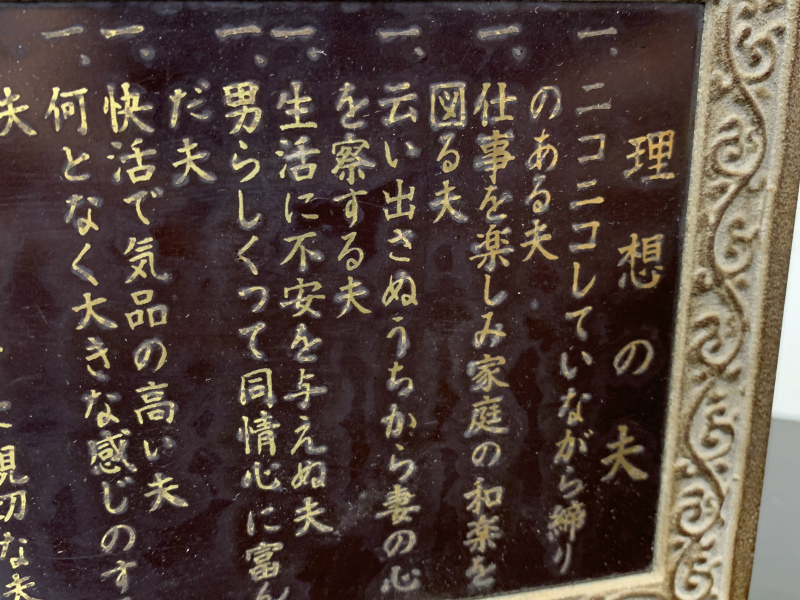 理想の夫
一、ニコニコしていながら締り
のある夫
一、仕事を楽しみ家庭の和楽を
図る夫
一、云い出さぬうちから妻の心
を察する夫
一、生活に不安を与えぬ夫
一、男らしくって同情心に富ん
だ夫
一、快活で気品の高い夫
一、何となく大きな感じのす
夫
親切な夫